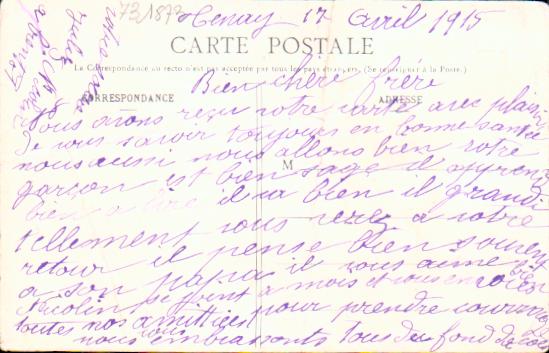 731873
Tenay 17 Avril 1915
CARTE POSTALE
La Correspondance au recto n'est pas acceptée par tous les pays étrangers. (Se renseigner à la Poste.)
Bien chère frère
CORRESPONDANCE
ADRESSE
Nous avons reçu votre carte avec plaisir
De vous savoir toujours en bonne santé
nous aussi nous allons bien votre
M
garçon est bien sage il apprend
bien a lire il va bien il grandi
tellement vous verez a votre
retour il pense bien souvent
a son papa il vous aime bien
Nicolin se joint a mois et vous envoi bien
toutes nos amitiées pour prendre courage
nous embrassants tous du fond du cœur
votre
Julie